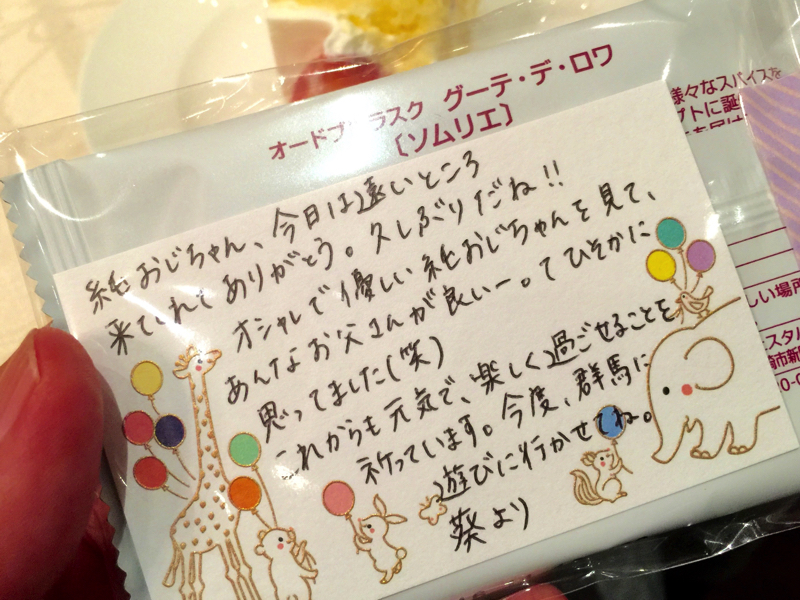 オードブ ラスク グーテ・デ・ロワ
[ソムリエ]
純おじちゃん、今日は遠いところ
来てくれてありがとう。久しぶりだね!!
オシャレで優しい純おじちゃんを見て、
あんなお父さんが良いー。てひそかに
思ってました(笑)
これからも元気で、楽しく過ごせることを
祈っています。今度、群馬に
遊びに行かせてね。
葵より
様々なスパイスを
プトに誕
しい場所
エスタル
崎市新